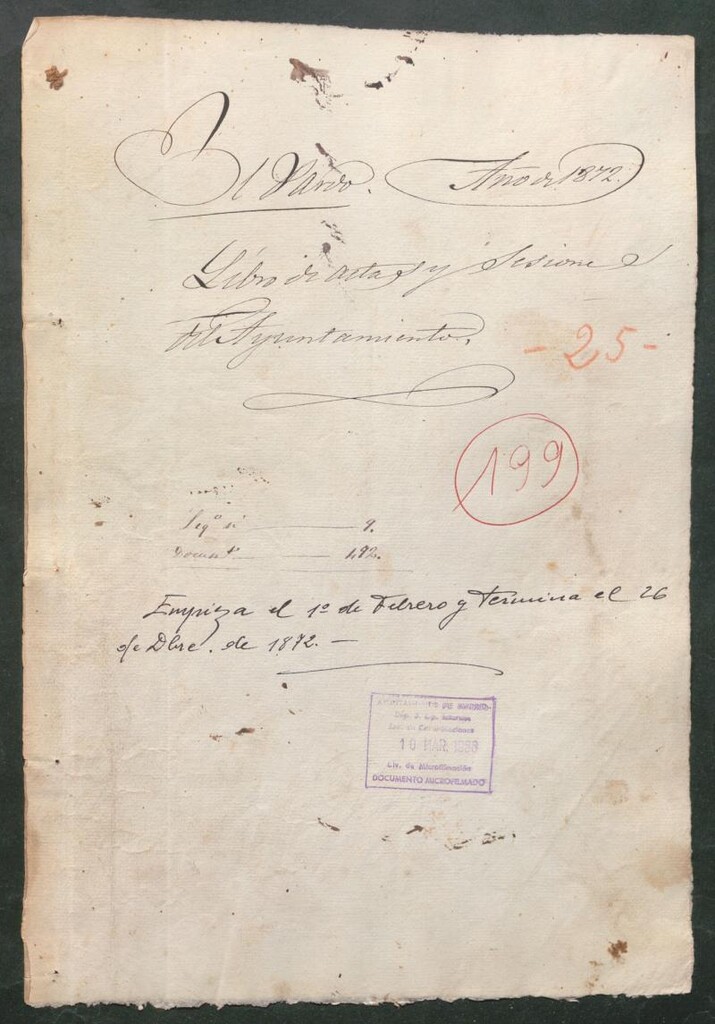 El Pardo. Año de 1872.
Libro de actas y Sesiones
del Ayuntamiento.
- 25 -
199
9.
192.
Empieza el 1º de Febrero y Termina el 26
de Dbre. de 1872. -
AYUNTAMIENTO DE MADRID
10 MAR. 19
Liv. de Microfilmación
DOCUMENTO MICROFILMADO